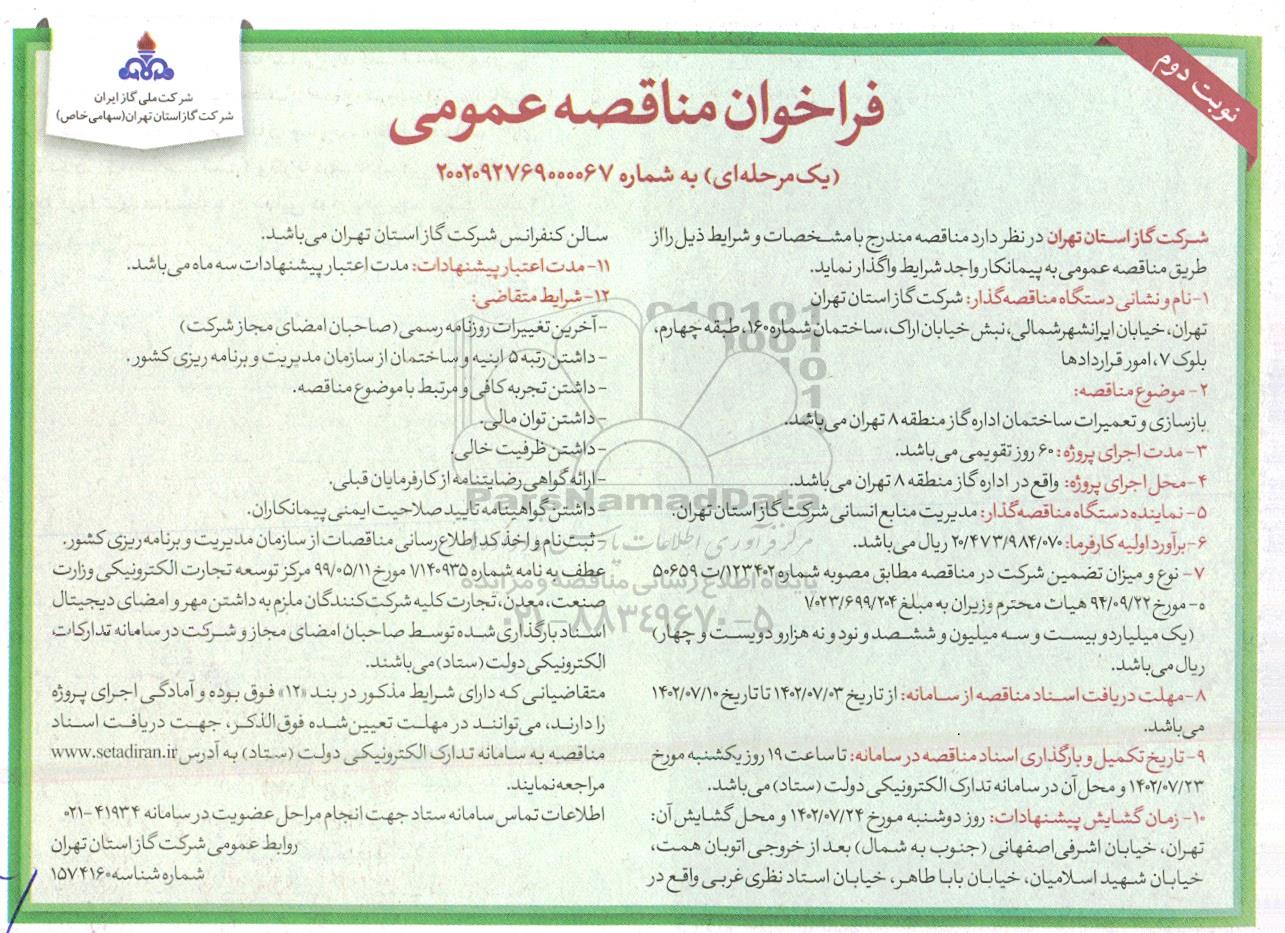 شرکت ملی گاز ایران
شرکت گاز استان تهران (سهامی خاص)
نوبت دوم
فراخوان مناقصه عمومی
(یک مرحله‌ای) به شماره ۲۰۰۲۰۹۲۷۶۹۰۰۰۰۶۷
شرکت گاز استان تهران در نظر دارد مناقصه مندرج با مشخصات و شرایط ذیل را از
طریق مناقصه عمومی به پیمانکار واجد شرایط واگذار نماید.
۱- نام و نشانی دستگاه مناقصه‌گذار: شرکت گاز استان تهران
تهران، خیابان ایرانشهر شمالی، نبش خیابان اراک، ساختمان شماره ۱۶۰، طبقه چهارم،
بلوک ۷، امور قراردادها
۲- موضوع مناقصه:
بازسازی و تعمیرات ساختمان اداره گاز منطقه ۸ تهران می‌باشد.
۳- مدت اجرای پروژه: ۶۰ روز تقویمی می‌باشد.
۴- محل اجرای پروژه: واقع در اداره گاز منطقه ۸ تهران می‌باشد.
۵- نماینده دستگاه مناقصه‌گذار: مدیریت منابع انسانی شرکت گاز استان تهران.
۶- برآورد اولیه کارفرما: ۲۰/۴۷۳/۹۸۴/۰۷۰ ریال می‌باشد.
۷- نوع و میزان تضمین شرکت در مناقصه مطابق مصوبه شماره ۱۲۳۴۰۲/ت ۵۰۶۵۹
ه- مورخ ۹۴/۰۹/۲۲ هیات محترم وزیران به مبلغ ۱/۰۲۳/۶۹۹/۲۰۴
(یک میلیارد و بیست و سه میلیون و ششصد و نود و نه هزار و دویست و چهار)
ریال می‌باشد.
۸- مهلت دریافت اسناد مناقصه از سامانه: از تاریخ ۱۴۰۲/۰۷/۰۳ تا تاریخ ۱۴۰۲/۰۷/۱۰
می‌باشد.
۹- تاریخ تکمیل و بارگذاری اسناد مناقصه در سامانه: تا ساعت ۱۹ روز یکشنبه مورخ
۱۴۰۲/۰۷/۲۳ و محل آن در سامانه تدارک الکترونیکی دولت (ستاد) می‌باشد.
۱۰- زمان گشایش پیشنهادات: روز دوشنبه مورخ ۱۴۰۲/۰۷/۲۴ و محل گشایش آن:
تهران، خیابان اشرفی اصفهانی (جنوب به شمال) بعد از خروجی اتوبان همت،
خیابان شهید اسلامیان، خیابان بابا طاهر، خیابان استاد نظری غربی واقع در
سالن کنفرانس شرکت گاز استان تهران می‌باشد.
۱۱- مدت اعتبار پیشنهادات: مدت اعتبار پیشنهادات سه ماه می‌باشد.
۱۲- شرایط متقاضی:
- آخرین تغییرات روزنامه رسمی (صاحبان امضای مجاز شرکت)
- داشتن رتبه ۵ ابنیه و ساختمان از سازمان مدیریت و برنامه ریزی کشور.
- داشتن تجربه کافی و مرتبط با موضوع مناقصه.
- داشتن توان مالی.
- داشتن ظرفیت خالی.
- ارائه گواهی رضایتنامه از کارفرمایان قبلی.
- داشتن گواهینامه تایید صلاحیت ایمنی پیمانکاران.
- ثبت نام و اخذ کد اطلاع رسانی مناقصات از سازمان مدیریت و برنامه ریزی کشور.
عطف به نامه شماره ۱/۱۴۰۹۳۵ مورخ ۹۹/۰۵/۱۱ مرکز توسعه تجارت الکترونیکی وزارت
صنعت، معدن، تجارت کلیه شرکت‌کنندگان ملزم به داشتن مهر و امضای دیجیتال
اسناد بارگذاری شده توسط صاحبان امضای مجاز و شرکت در سامانه تدارکات
الکترونیکی دولت (ستاد) می‌باشند.
متقاضیانی که دارای شرایط مذکور در بند «۱۲» فوق بوده و آمادگی اجرای پروژه
را دارند، می‌توانند در مهلت تعیین شده فوق‌الذکر، جهت دریافت اسناد
مناقصه به سامانه تدارک الکترونیکی دولت (ستاد) به آدرس www.setadiran.ir
مراجعه نمایند.
اطلاعات تماس سامانه ستاد جهت انجام مراحل عضویت در سامانه ۴۱۹۳۴-۰۲۱
روابط عمومی شرکت گاز استان تهران
شماره شناسه ۱۵۷۴۱۶۰
ParsNamadData
پایگاه اطلاع رسانی مناقصه و مزایده
۰۲۱-۸۸۳۴۹۶۷۰-۵